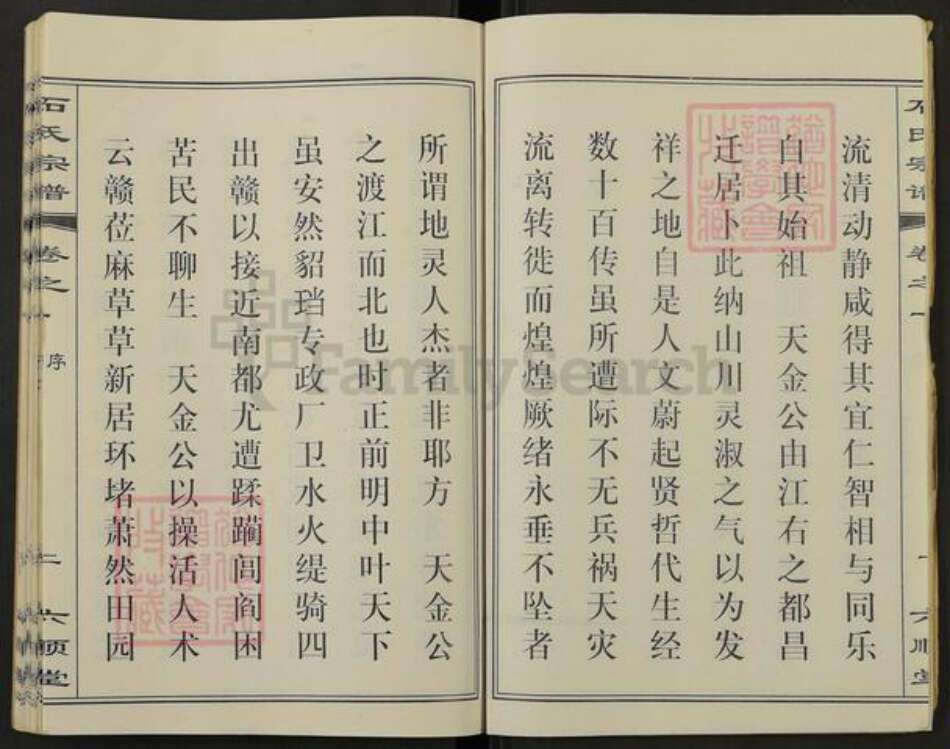 石氏宗谱
卷之一
一
六顺堂
流清动静咸得其宜仁智相与同乐
自其始祖 天金公由江右之都昌
迁居卜此纳山川灵淑之气以为发
祥之地自是人文蔚起贤哲代生经
数十百传虽所遭际不无兵祸天灾
流离转徙而煌煌厥绪永垂不坠者
所谓地灵人杰者非耶方 天金公
之渡江而北也时正前明中叶天下
虽安然貂珰专政厂卫水火缇骑四
出赣以接近南都尤遭蹂躏闾阎困
苦民不聊生 天金公以操活人术
云赣莅麻草草新居环堵萧然田园
石氏宗谱
卷之一
序
二
六顺堂
FamilySearch